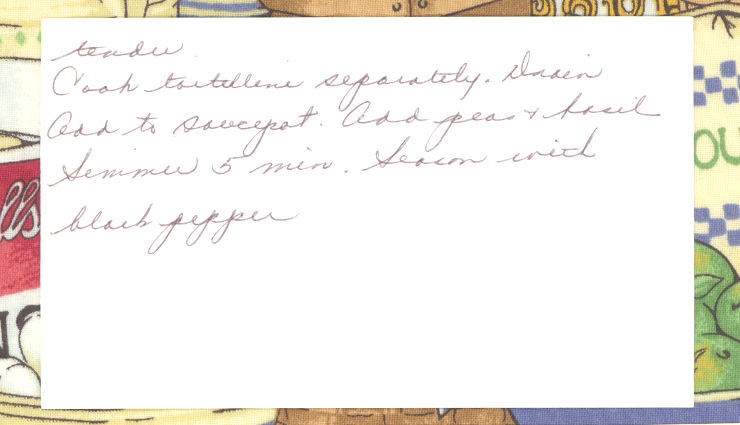 tender
Cook tortellini separately. Drain
Add to saucepot. Add peas + basil
Simmer 5 min. Season with
black pepper